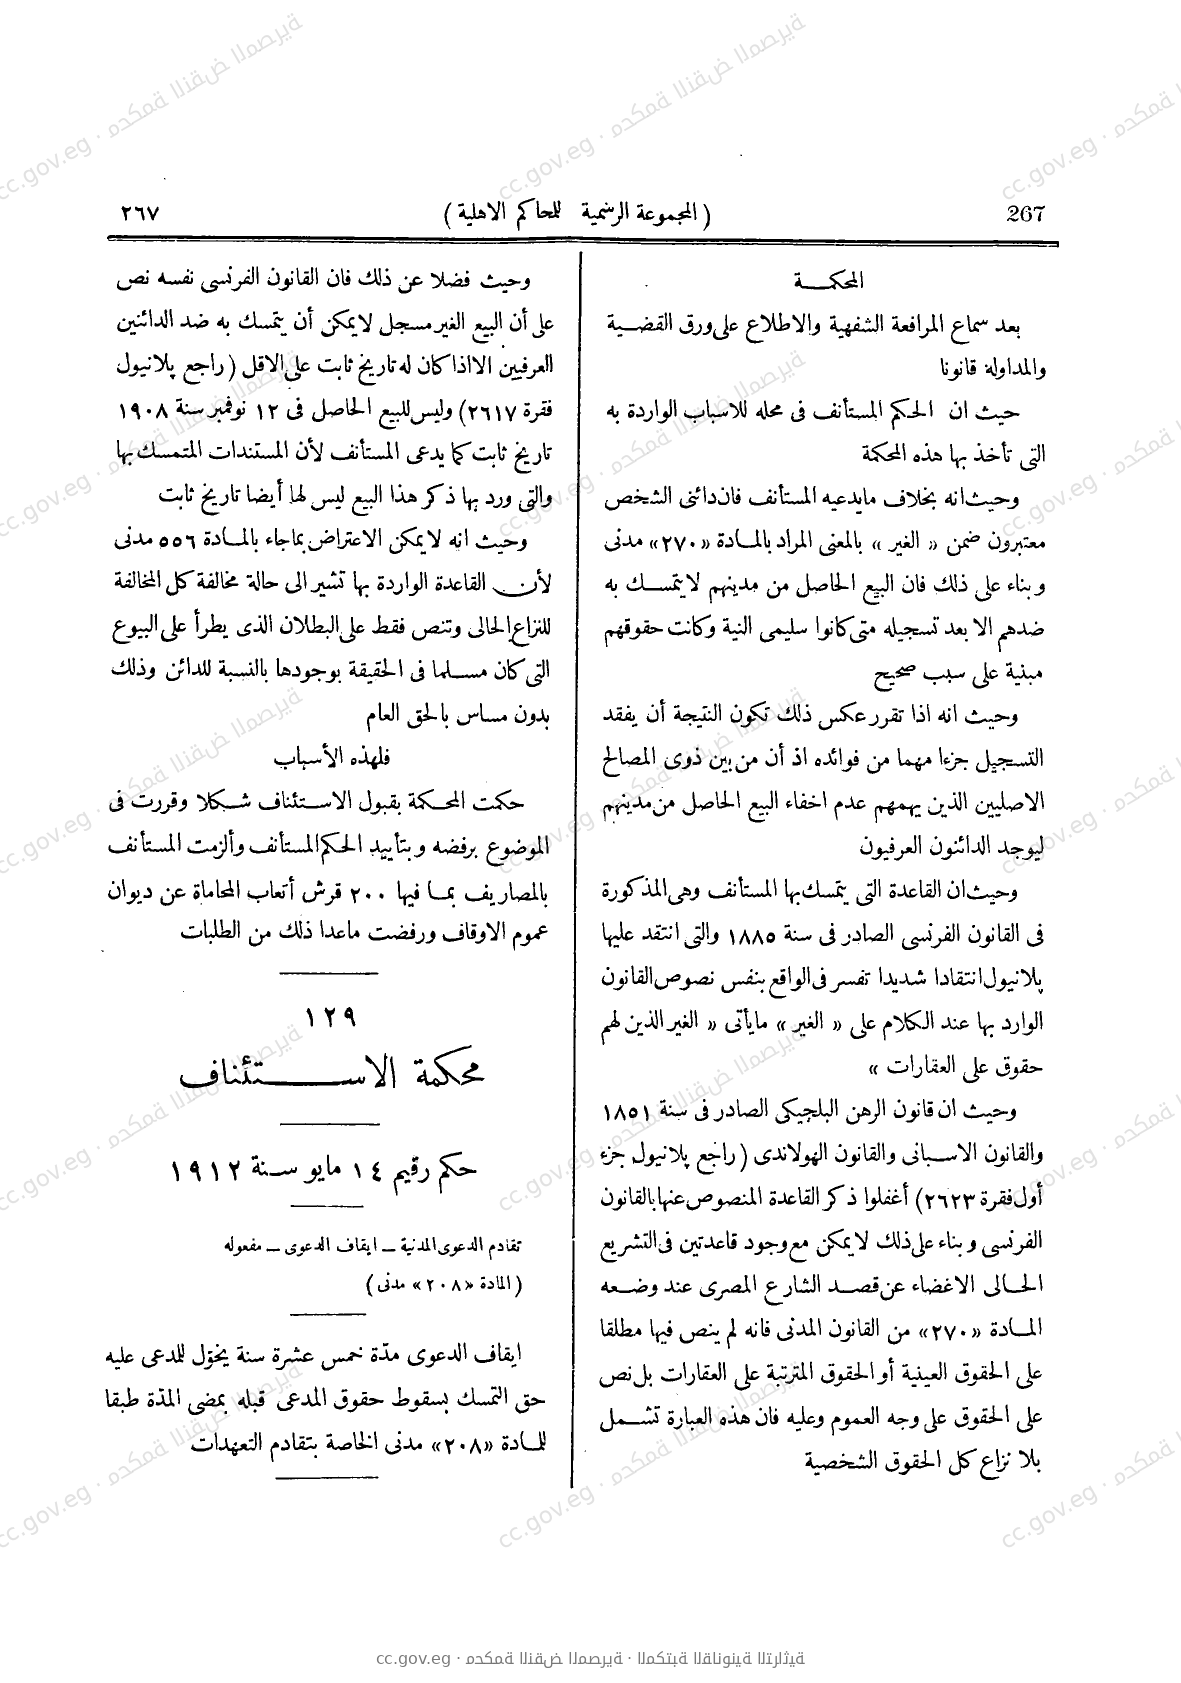 267
(المجموعة الرسمية للمحاكم الاهلية)
٢٦٧
المحكمة
بعد سماع المرافعة الشفهية والاطلاع على ورق القضية
والمداولة قانونا
حيث ان الحكم المستأنف فى محله للاسباب الواردة به
التى تأخذ بها هذه المحكمة
وحيث انه بخلاف مايدعيه المستأنف فان دائنى الشخص
معتبرون ضمن « الغير » بالمعنى المراد بالمادة «٢٧٠» مدنى
وبناء على ذلك فان البيع الحاصل من مدينهم لا يتمسك به
ضدهم الا بعد تسجيله متى كانوا سليمى النية وكانت حقوقهم
مبنية على سبب صحيح
وحيث انه اذا تقرر عكس ذلك تكون النتيجة أن يفقد
التسجيل جزءا مهما من فوائده اذ أن من بين ذوى المصالح
الاصليين الذين يهمهم عدم اخفاء البيع الحاصل من مدينهم
ليوجد الدائنون العرفيون
وحيث ان القاعدة التى يتمسك بها المستأنف وهى المذكورة
فى القانون الفرنسى الصادر فى سنة ١٨٨٥ والتى انتقد عليها
پلانيول انتقادا شديدا تفسر فى الواقع بنفس نصوص القانون
الوارد بها عند الكلام على « الغير » مايأتى « الغير الذين لهم
حقوق على العقارات »
وحيث ان قانون الرهن البلجيكى الصادر فى سنة ١٨٥١
والقانون الاسبانى والقانون الهولاندى (راجع پلانيول جزء
أول فقرة ٢٦٢٣) أغفلوا ذكر القاعدة المنصوص عنها بالقانون
الفرنسى وبناء على ذلك لا يمكن مع وجود قاعدتين فى التشريع
الحالى الاغضاء عن قصد الشارع المصرى عند وضعه
المادة «٢٧٠» من القانون المدنى فانه لم ينص فيها مطلقا
على الحقوق العينية أو الحقوق المترتبة على العقارات بل نص
على الحقوق على وجه العموم وعليه فان هذه العبارة تشمل
بلا نزاع كل الحقوق الشخصية
وحيث فضلا عن ذلك فان القانون الفرنسى نفسه نص
على أن البيع الغير مسجل لا يمكن أن يتمسك به ضد الدائنين
العرفيين الا اذا كان له تاريخ ثابت على الاقل (راجع پلانيول
فقرة ٢٦١٧) وليس للبيع الحاصل فى ١٢ نوفمبر سنة ١٩٠٨
تاريخ ثابت كما يدعى المستأنف لأن المستندات المتمسك بها
والتى ورد بها ذكر هذا البيع ليس لها أيضا تاريخ ثابت
وحيث انه لا يمكن الاعتراض بماجاء بالمادة ٥٥٦ مدنى
لأن القاعدة الواردة بها تشير الى حالة مخالفة كل المخالفة
للنزاع الحالى وتنص فقط على البطلان الذى يطرأ على البيوع
التى كان مسلما فى الحقيقة بوجودها بالنسبة للدائن وذلك
بدون مساس بالحق العام
فلهذه الأسباب
حكمت المحكمة بقبول الاستئناف شكلا وقررت فى
الموضوع برفضه وبتأييد الحكم المستأنف وألزمت المستأنف
بالمصاريف بما فيها ٢٠٠ قرش أتعاب المحاماة عن ديوان
عموم الاوقاف ورفضت ماعدا ذلك من الطلبات
١٢٩
محكمة الاستئناف
حكم رقيم ١٤ مايو سنة ١٩١٢
تقادم الدعوى المدنية ــ ايقاف الدعوى ــ مفعوله
(المادة «٢٠٨» مدنى)
ايقاف الدعوى مدّة خمس عشرة سنة يخوّل للمدعى عليه
حق التمسك بسقوط حقوق المدعى قبله بمضى المدّة طبقا
للمادة «٢٠٨» مدنى الخاصة بتقادم التعهدات
cc.gov.eg · محكمة النقض المصرية · المكتبة القانونية التراثية